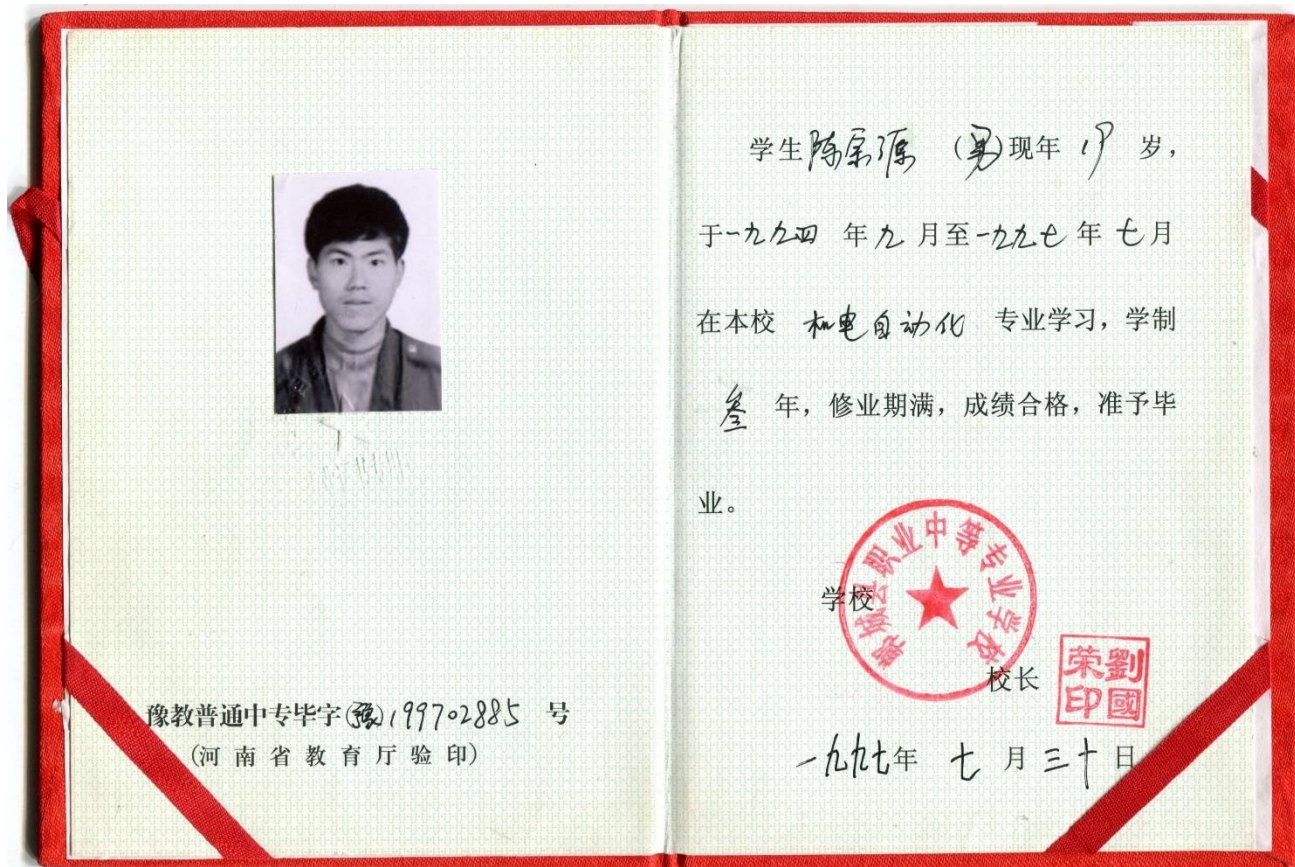 豫教普通中专毕字(豫)199702885 号
(河南省教育厅验印)
学生陈宗源 (男)现年 19 岁,
于一九九四 年 九 月至一九九七 年 七月
在本校 机电自动化 专业学习,学制
叁 年,修业期满,成绩合格,准予毕
业。
郸城县职业中等专业学校
学校
校长
劉國荣印
一九九七年 七 月 三十日